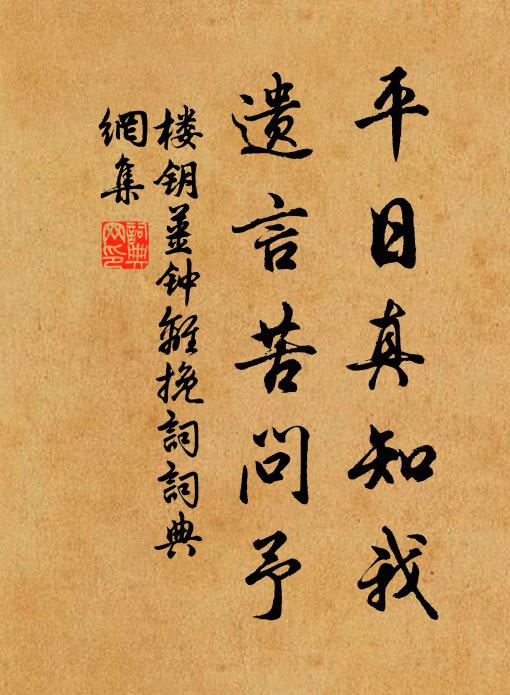 平日真知我
遗言苦问予
楼钥姜钟离挽词词典
网集
詞典
网印